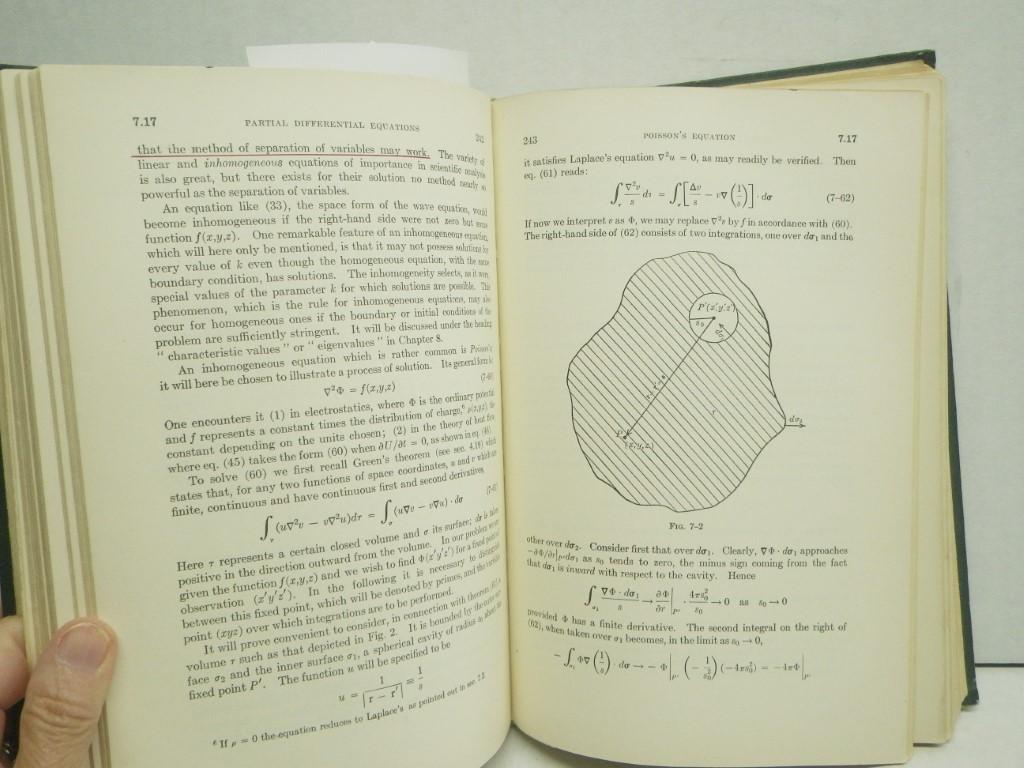 7.17 PARTIAL DIFFERENTIAL EQUATIONS 242
that the method of separation of variables may work. The variety of
linear and inhomogeneous equations of importance in scientific analysis
is also great, but there exists for their solution no method nearly so
powerful as the separation of variables.
An equation like (33), the space form of the wave equation, would
become inhomogeneous if the right-hand side were not zero but some
function f(x,y,z). One remarkable feature of an inhomogeneous equation,
which will here only be mentioned, is that it may not possess solutions for
every value of k even though the homogeneous equation, with the same
boundary condition, has solutions. The inhomogeneity selects, as it were,
special values of the parameter k for which solutions are possible. This
phenomenon, which is the rule for inhomogeneous equations, may also
occur for homogeneous ones if the boundary or initial conditions of the
problem are sufficiently stringent. It will be discussed under the heading
“ characteristic values ” or “ eigenvalues ” in Chapter 8.
An inhomogeneous equation which is rather common is Poisson's;
it will here be chosen to illustrate a process of solution. Its general form is
∇²Φ = f(x,y,z) (7-60)
One encounters it (1) in electrostatics, where Φ is the ordinary potential
and f represents a constant times the distribution of charge,⁶ ρ(x,y,z), the
constant depending on the units chosen; (2) in the theory of heat flow
where eq. (45) takes the form (60) when ∂U/∂t = 0, as shown in eq. (46).
To solve (60) we first recall Green's theorem (see sec. 4.18) which
states that, for any two functions of space coordinates, u and v which are
finite, continuous and have continuous first and second derivatives,
∫τ (u∇²v − v∇²u)dτ = ∫σ (u∇v − v∇u) · dσ (7-61)
Here τ represents a certain closed volume and σ its surface; dσ is taken
positive in the direction outward from the volume. In our problem we are
given the function f(x,y,z) and we wish to find Φ(x′y′z′) for a fixed point of
observation (x′y′z′). In the following it is necessary to distinguish
between this fixed point, which will be denoted by primes, and the variable
point (xyz) over which integrations are to be performed.
It will prove convenient to consider, in connection with theorem (61), a
volume τ such as that depicted in Fig. 2. It is bounded by the outer sur-
face σ₂ and the inner surface σ₁, a spherical cavity of radius s₀ about the
fixed point P′. The function u will be specified to be
u = 1/|r − r′| = 1/s
⁶ If ρ = 0 the equation reduces to Laplace's as pointed out in sec 7.2.
243 POISSON'S EQUATION 7.17
it satisfies Laplace's equation ∇²u = 0, as may readily be verified. Then
eq. (61) reads:
∫τ ∇²v/s dτ = ∫σ [∆v/s − v∇(1/s)] · dσ (7-62)
If now we interpret v as Φ, we may replace ∇²v by f in accordance with (60).
The right-hand side of (62) consists of two integrations, one over dσ₁ and the
P′(x′,y′,z′)
s₀
dσ₁
s=|r−r′|
τ
dσ₂
P
(x,y,z)
FIG. 7-2
other over dσ₂. Consider first that over dσ₁. Clearly, ∇Φ · dσ₁ approaches
−∂Φ/∂r|P′dσ₁ as s₀ tends to zero, the minus sign coming from the fact
that dσ₁ is inward with respect to the cavity. Hence
∫σ₁ ∇Φ · dσ₁/s → ∂Φ/∂r|P′ · 4πs₀²/s₀ → 0 as s₀ → 0
provided Φ has a finite derivative. The second integral on the right of
(62), when taken over σ₁ becomes, in the limit as s₀ → 0,
− ∫σ₁ Φ∇(1/s) · dσ → − Φ|P′ (− 1/s₀²) (−4πs₀²) = −4πΦ|P′